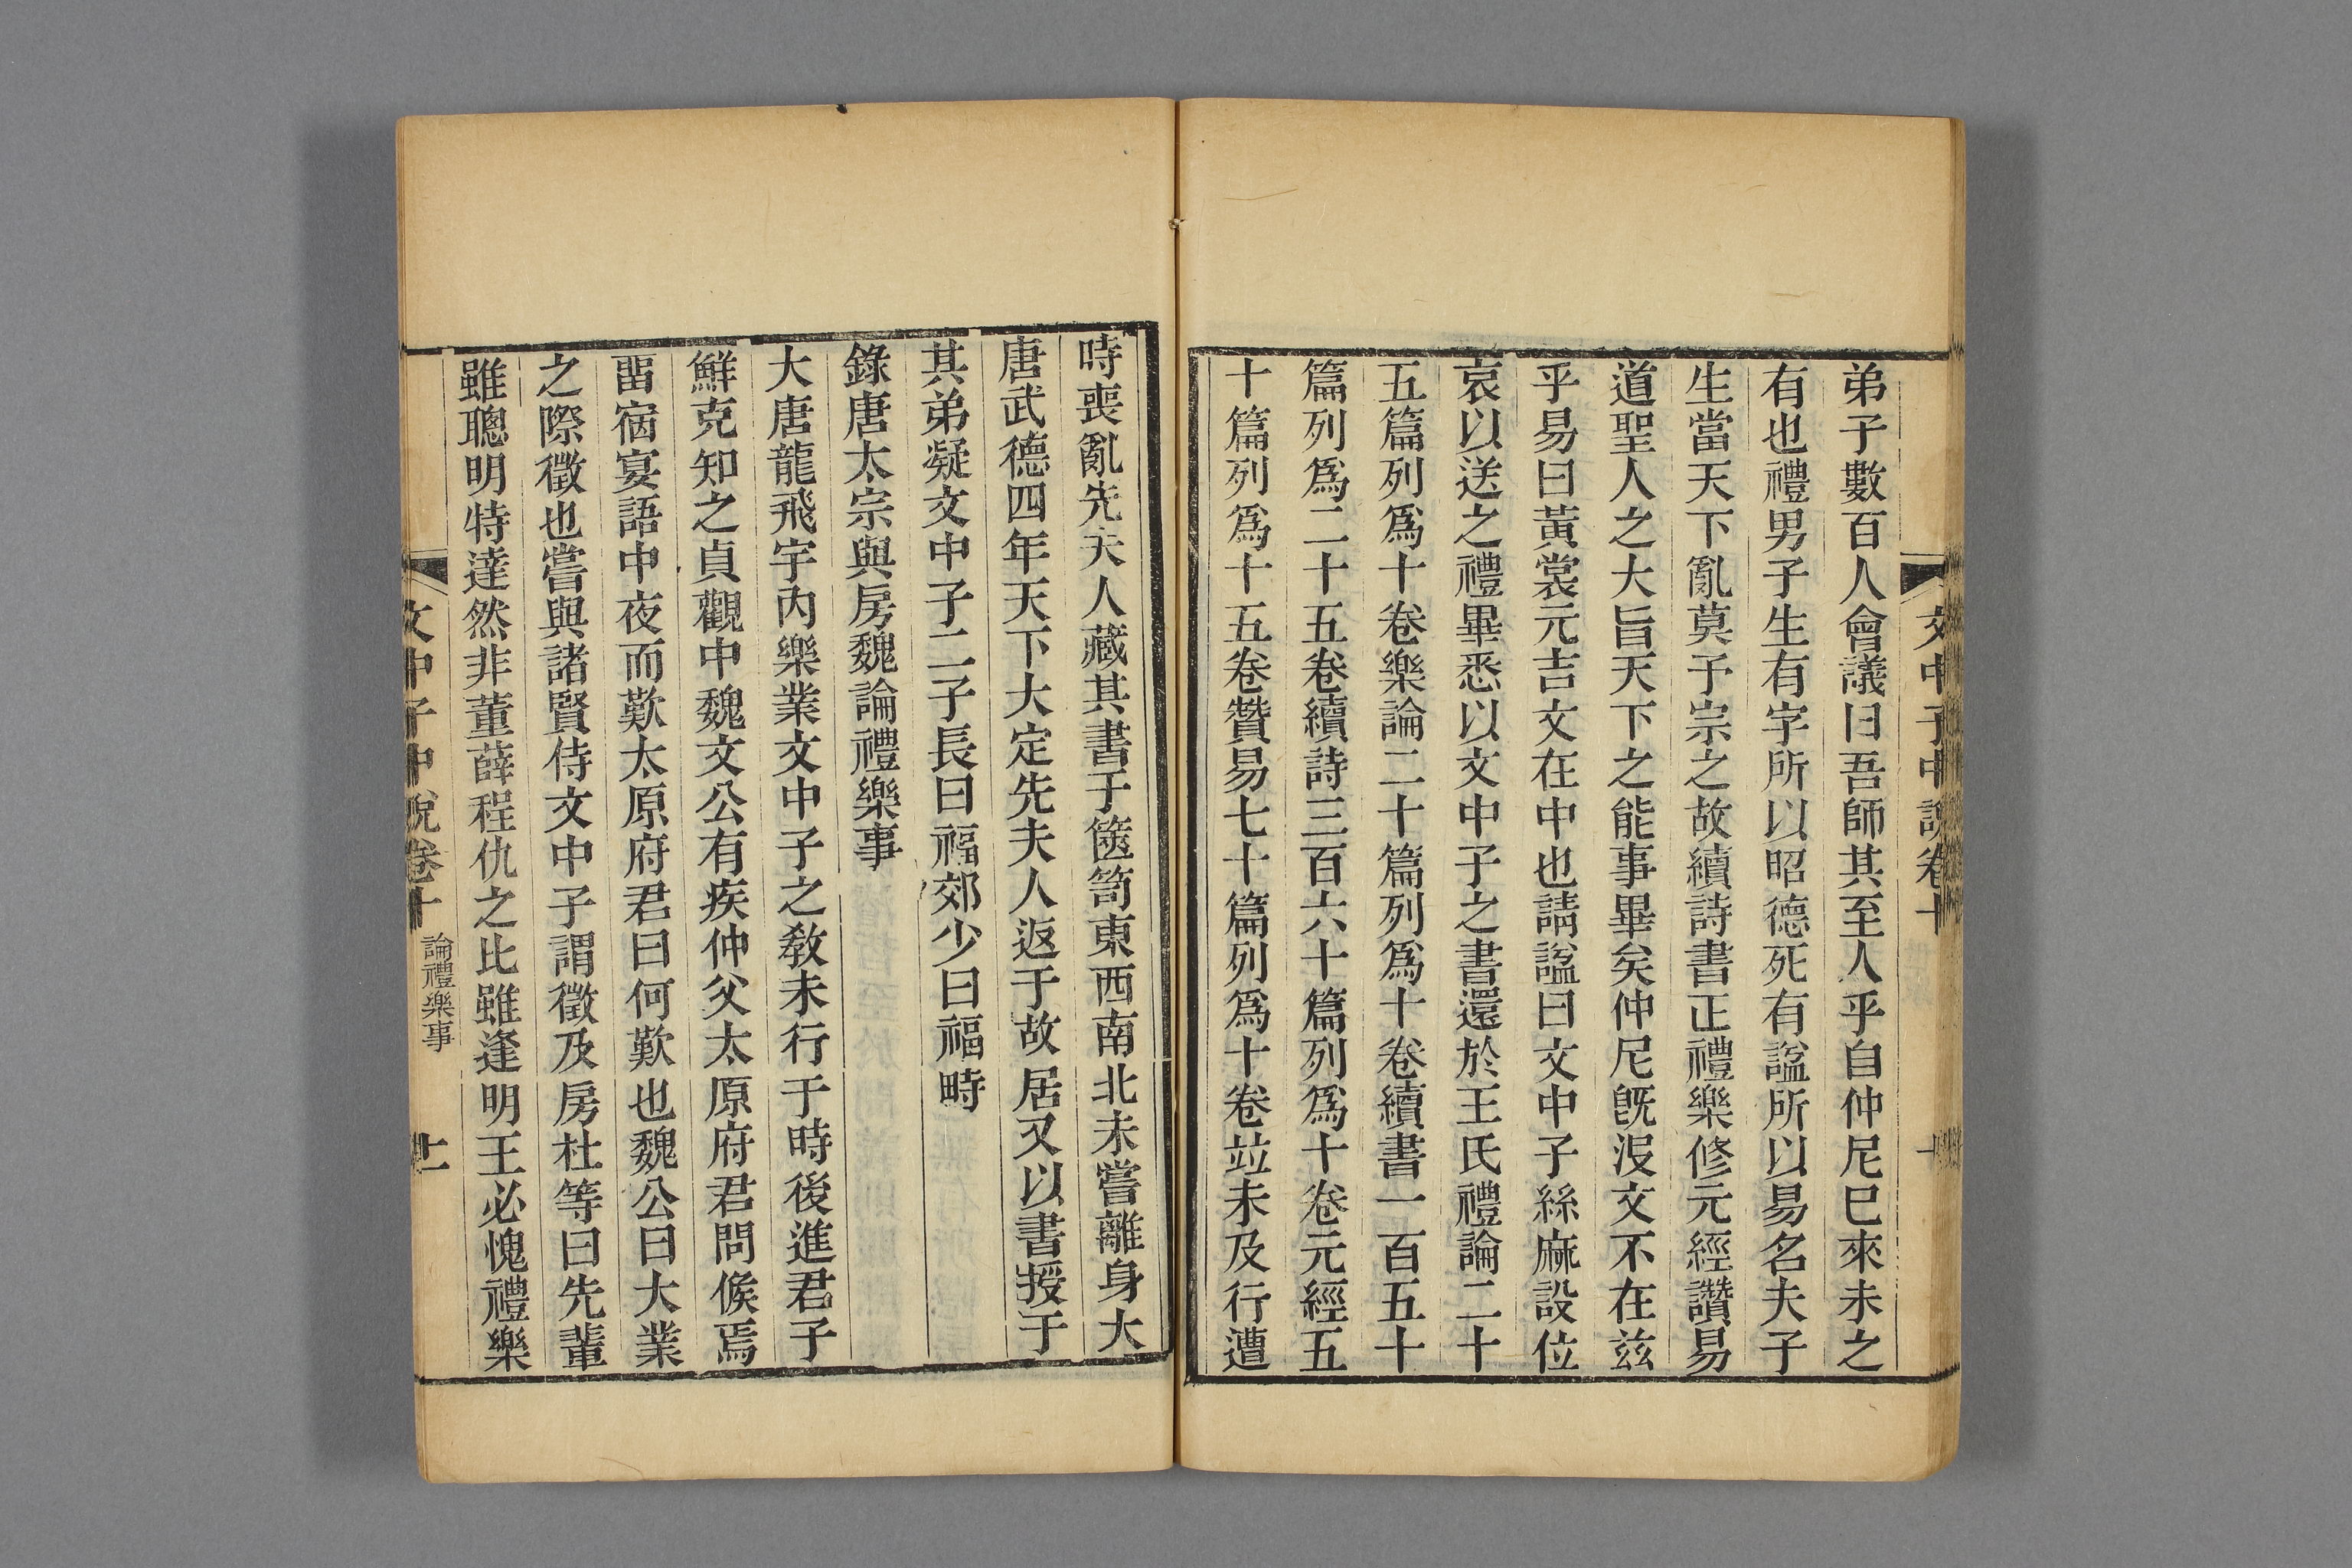 文中子中說卷十
弟子數百人會議曰吾師其至人乎自仲尼已來未之
有也禮男子生有字所以昭德死有諡所以易名夫子
生當天下亂莫予宗之故續詩書正禮樂修元經讚易
道聖人之大旨天下之能事畢矣仲尼旣沒文不在茲
乎易曰黃裳元吉文在中也請諡曰文中子絲麻設位
哀以送之禮畢悉以文中子之書還於王氏禮論二十
五篇列爲十卷樂論二十篇列爲十卷續書一百五十
篇列爲二十五卷續詩三百六十篇列爲十卷元經五
十篇列爲十五卷贊易七十篇列爲十卷竝未及行遭
時喪亂先夫人藏其書于篋笥東西南北未嘗離身大
唐武德四年天下大定先夫人返于故居又以書授于
其弟凝文中子二子長曰福郊少曰福畤
錄唐太宗與房魏論禮樂事
大唐龍飛宇內樂業文中子之敎未行于時後進君子
鮮克知之貞觀中魏文公有疾仲父太原府君問候焉
畱宿宴語中夜而歎太原府君曰何歎也魏公曰大業
之際徵也嘗與諸賢侍文中子謂徵及房杜等曰先輩
雖聰明特達然非董薛程仇之比雖逢明王必愧禮樂
文中子中說卷十 論禮樂事 十一